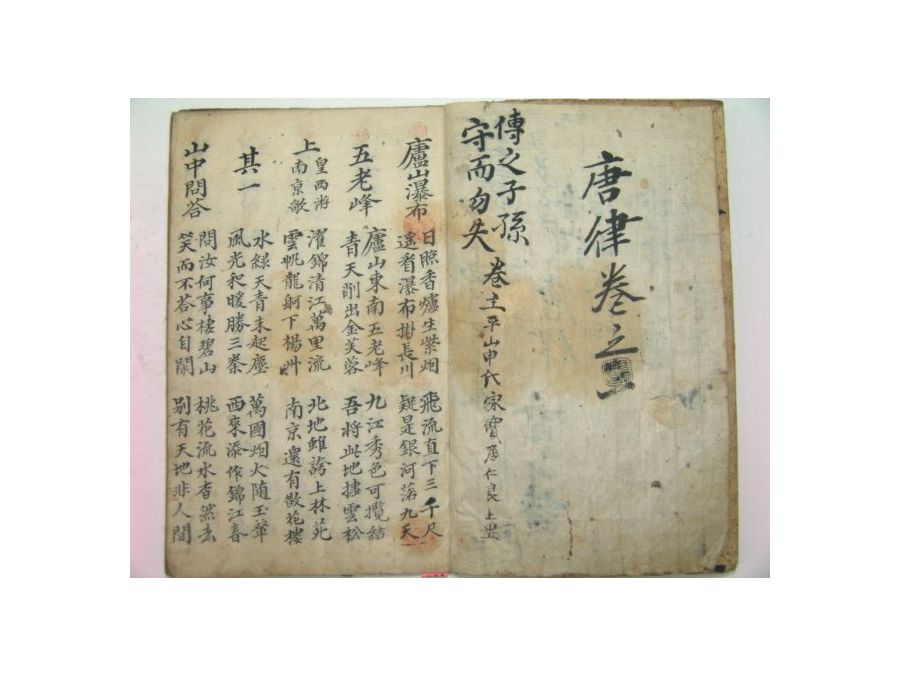 唐律卷之
傳之子孫
守而勿失
卷之平山申氏家寶
廬山瀑布
日照香爐生紫烟 飛流直下三千尺
遙看瀑布掛長川 疑是銀河落九天
五老峰
廬山東南五老峰 九江秀色可攬結
青天削出金芙蓉 吾將此地捿雲松
上皇西遊南京歌
濯錦清江萬里流 北地雖誇上林苑
雲帆龍舸下楊州 南京還有散花樓
其一
水綠天青未起塵 萬國烟火随玉輦
風光和暖勝三秦 西來添作錦江春
山中問答
問汝何事棲碧山 桃花流水杳然去
笑而不答心自閑 別有天地非人間